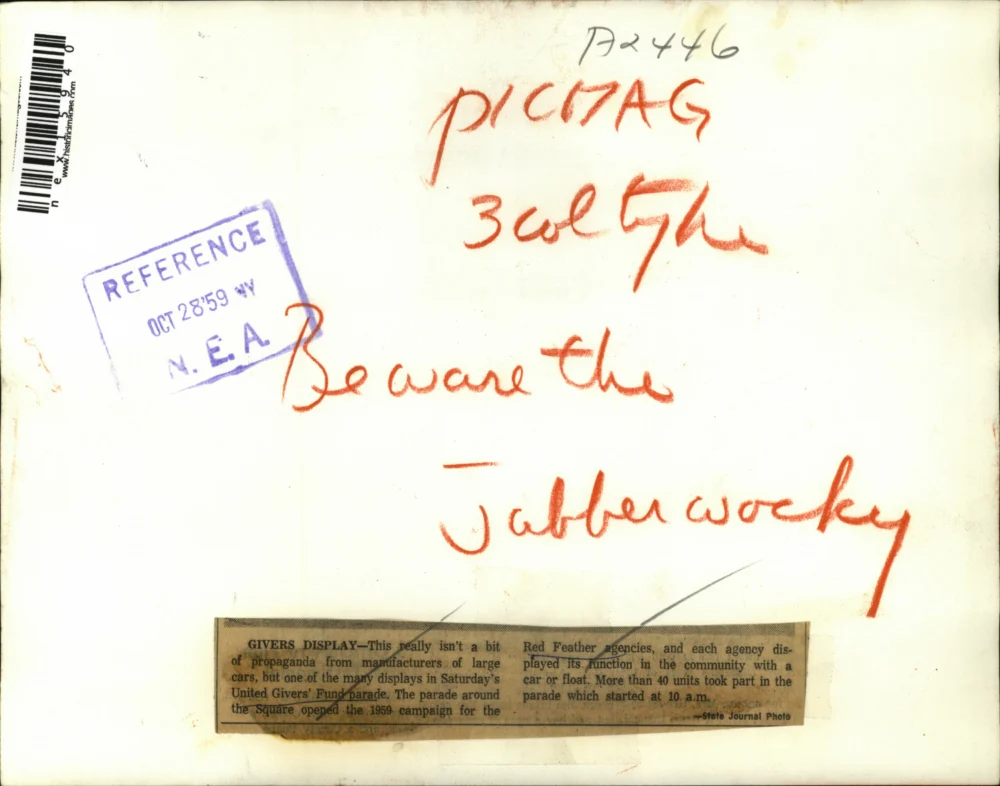 A2446
PICMAG
3 col
Beware the
Jabberwocky
REFERENCE
OCT 28'59 NY
N. E. A.
nex15940
www.historicimages.com
GIVERS DISPLAY—This really isn't a bit
of propaganda from manufacturers of large
cars, but one of the many displays in Saturday's
United Givers' Fund parade. The parade around
the Square opened the 1959 campaign for the
Red Feather agencies, and each agency dis-
played its function in the community with a
car or float. More than 40 units took part in the
parade which started at 10 a.m.
—State Journal Photo